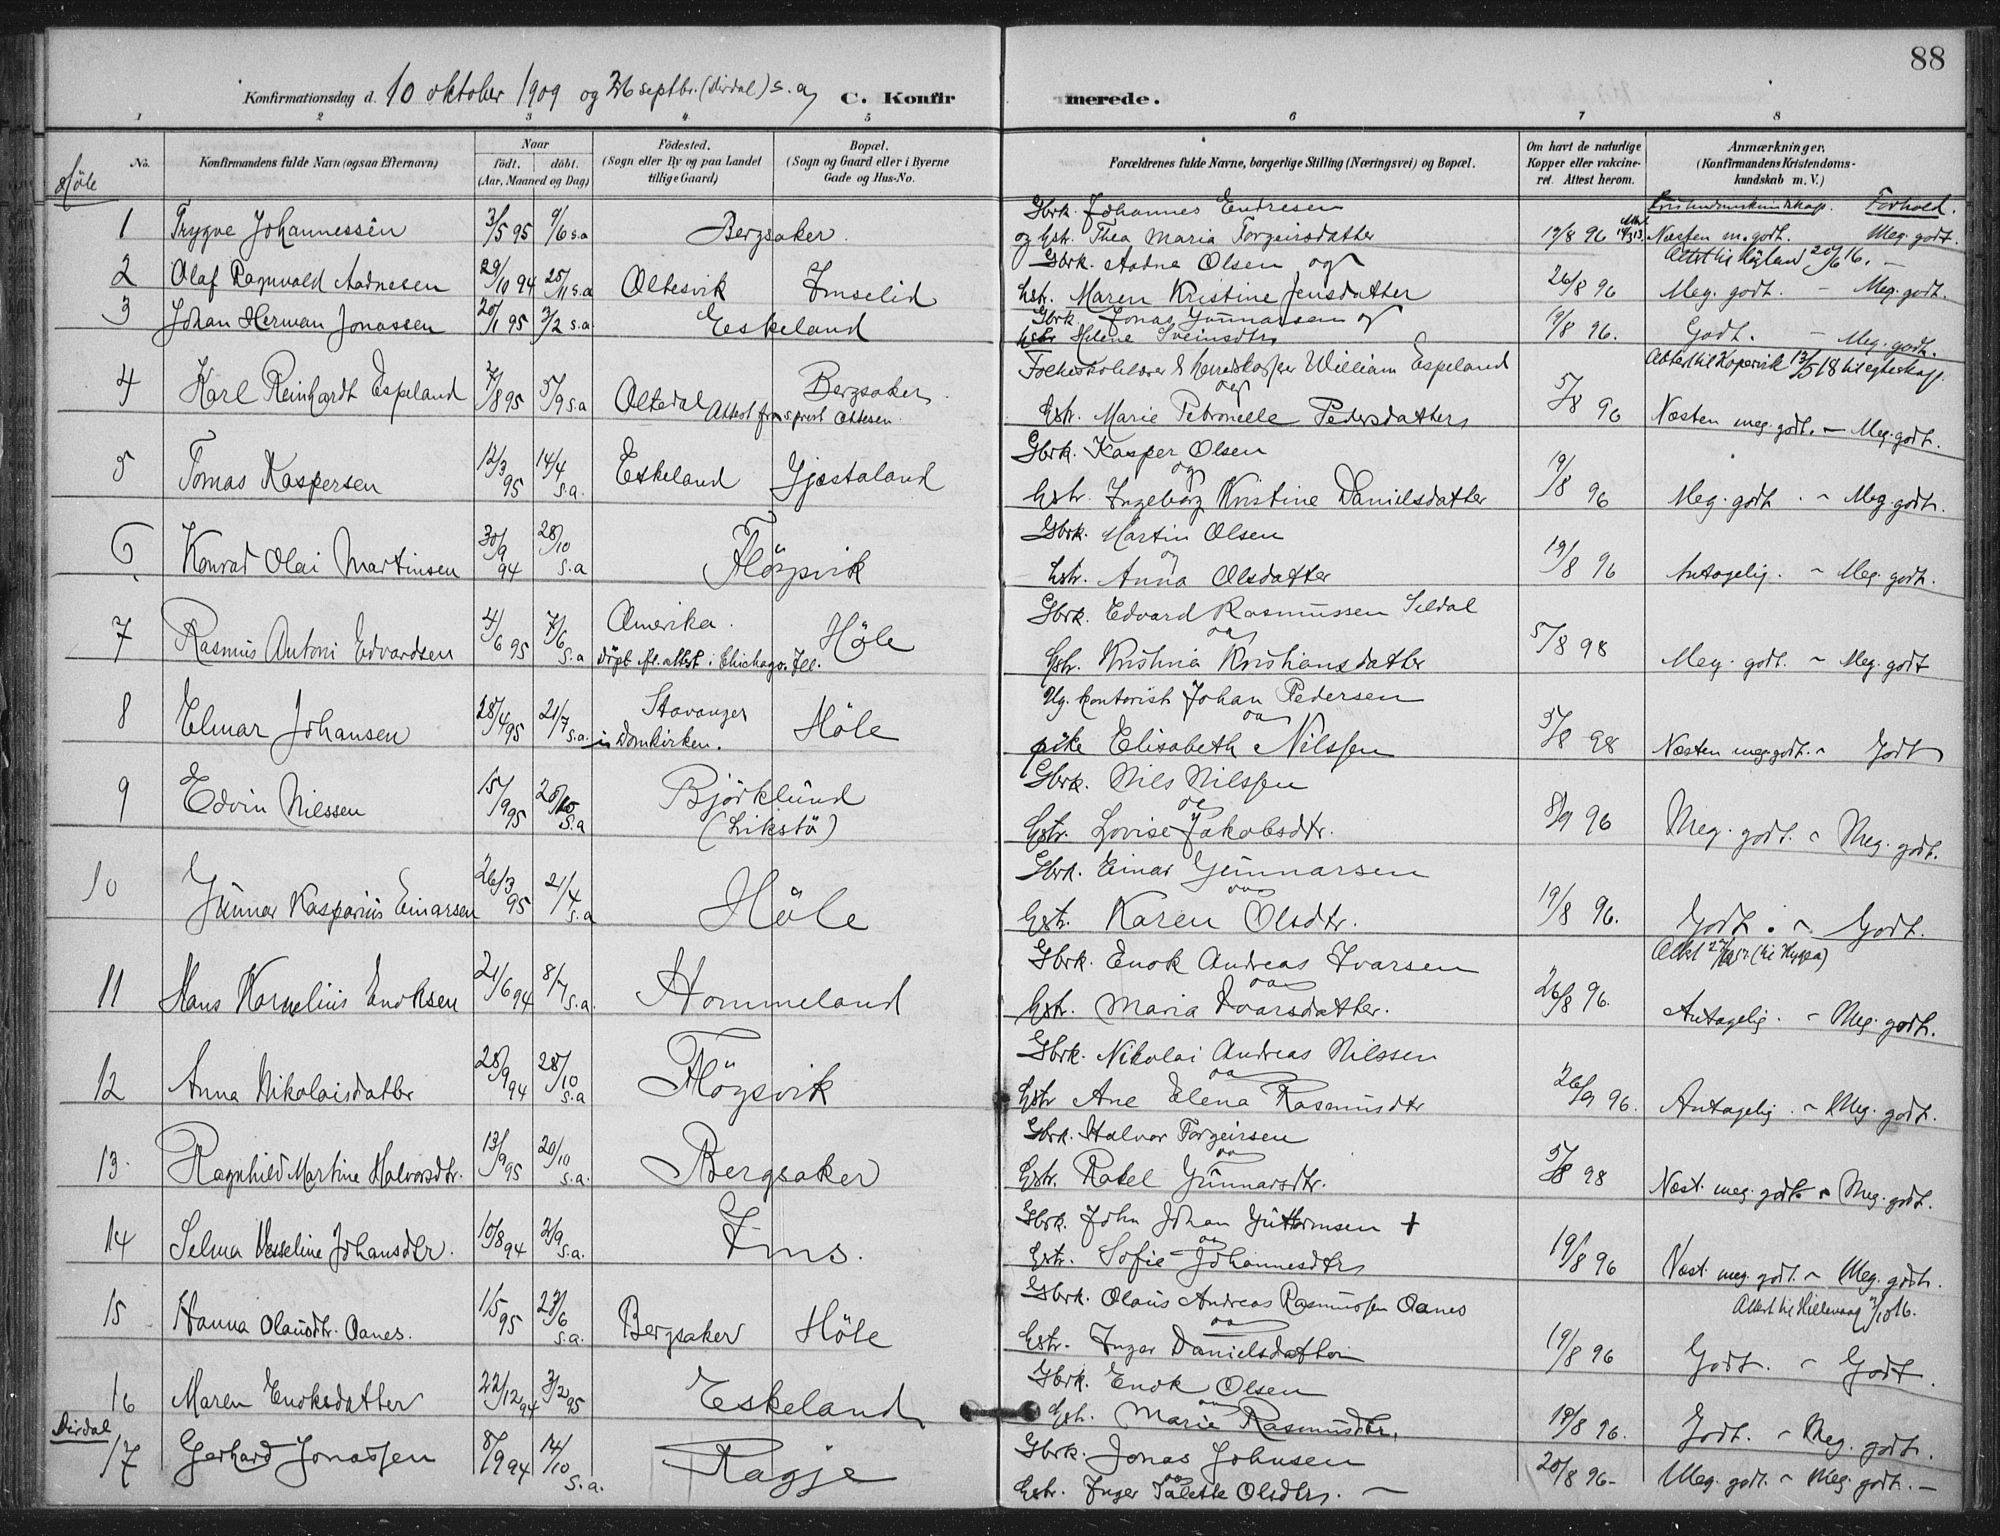 88
Konfirmationsdag d. 10 oktober 1909 og 26 septbr. (Dirdal) s.a. C. Konfirmerede.
1 2 3 4 5 6 7 8
No. Konfirmandens fulde Navn (ogsaa Efternavn) Naar født. døbt. (Aar, Maaned og Dag) Fødested. (Sogn eller By og paa Landet tillige Gaard) Bopæl. (Sogn og Gaard eller i Byerne Gade og Hus-No. Forældrenes fulde Navne, borgerlige Stilling (Næringsvei) og Bopæl. Om havt de naturlige Kopper eller vakcineret. Attest herom. Anmærkninger, (Konfirmandens Kristendomskundskab m. V.)
Høle
Kristendomskundskap. Forhold.
1 Trygve Johannessen 3/5 95 9/6 s.a Bergsaker. Gbrk. Johannes Endresen
og hstr. Thea Maria Torgeirsdatter 19/8 96 Næsten m. godt. Meg. godt.
2 Olaf Ragnvald Aadnesen 29/10 94 25/11 s.a Oltesvik Imselid Gbrk. Aadne Olsen og
hstr. Maren Kristine Jensdatter 26/8 96 Meg. godt. - Meg. godt.
Attest til Højland 20/6 16.
3 Johan Herman Jonassen 20/1 95 3/2 s.a Eskeland Gbrk. Jonas Gunnarsen og
hstr Helene Sveinsdtr 19/8 96. Godt. - Meg. godt.
4 Karl Reinhardt Espeland 7/8 95 5/9 s.a Oltedal Bergsaker
Attest fra sprest Ottesen.
Folkeskolelærer & herredskasser William Espeland
og
hstr. Marie Petronelle Pedersdatter 5/8 96 Næsten meg. godt. - Meg. godt.
Attest til Kopervik 13/5 18 til egteskap.
5 Tomas Kaspersen 12/3 95 14/4 s.a. Eskeland Gjestaland Gbrk. Kasper Olsen
og
hstr. Ingeborg Kristine Danielsdatter 19/8 96 Meg. godt. - Meg. godt.
6 Konrad Olai Martinsen 30/9 94 28/10 s.a Fløysvik Gbrk. Martin Olsen
og
hstr. Anna Olsdatter 19/8 96 Antagelig. - Meg. godt.
7 Rasmus Antoni Edvardsen 4/6 95 7/6 s.a Amerika. Høle
Døpt fl. attest i Chichago. Ill.
Gbrk. Edvard Rasmussen Seldal
og
hstr. Kristina Kristiansdatter 5/8 98 Meg. godt. - Meg. godt
8 Elmar Johansen 28/4 95 21/7 s.a. Stavanger Høle
i Domkirken.
Ug. kontorist Johan Pedersen
og
pike Elisabeth Nilssen 5/8 98 Næsten meg. godt. - Godt
9 Edvin Nilssen 15/9 95 20/10 s.a Bjørklund
(Likstø)
Gbrk. Nils Nilssen
og
hstr. Lovise Jakobsdtr. 8/9 96 Meg. godt. - Meg. godt.
10 Gunnar Kasparius Einarsen 26/3 95 21/4 s.a Høle Gbrk. Einar Gunnarsen
og
hstr. Karen Olsdtr. 19/8 96. Godt. - Godt.
11 Hans Kornelius Enoksen 21/6 94 8/7 s.a. Hommeland Gbrk. Enok Andreas Ivarsen
og
hstr. Maria Ivarsdatter. 26/8 96. Antagelig - Meg. godt.
12 Anna Nikolaisdatter 28/9 94 28/10 s.a Fløysvik Gbrk. Nikolai Andreas Nilssen
og
hstr Ane Elena Rasmusdtr 26/9 96. Antagelig. - Meg. godt.
13. Ragnhild Martine Halvorsdtr. 13/9 95 20/10 s.a. Bergsaker Gbrk. Halvor Torgeirsen
og
hstr. Rakel Gunnarsdtr. 5/8 98 Næst. meg. godt. - Meg. godt.
14 Selma Vesseline Johansdtr. 10/8 94 2/9 s.a. Ims. Gbrk. John Johan Guttormsen +
og
hstr. Sofie Johannesdtr 19/8 96 Næst. meg. godt. - Meg. godt.
15 Hanna Olausdtr. Oanes. 1/5 95 23/6 s.a. Bergsaker Høle Gbrk. Olaus Andreas Rasmussen Oanes
og
hstr. Inger Danielsdatter 19/8 96 Godt. - Godt.
Attest til Hillevaag 2/10 16.
16 Maren Enoksdatter 22/12 94 3/2 95 Eskeland Gbrk. Enok Olsen
og
hstr. Marie Rasmusdtr. 19/8 96. Godt. - Meg. godt.
Dirdal
17 Gerhard Jonassen 8/9 94 14/10 s.a. Ragje Gbrk. Jonas Johnsen
og
hstr. Inger Talette Olsdtr. - 20/8 96- Meg. godt. - Meg. godt. -